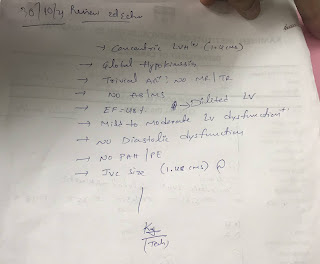 30/10/21 Review 2decho
→ Concentric LVH+ (1.41 cms)
→ Global Hypokinesia
→ Trivial AR+: NO MR/TR
→ NO AS/MS
→ EF=48% → Dilated LV
→ Mild to Moderate LV dysfunction+
→ NO Diastolic dysfunction
→ NO PAH/PE
→ IVC size (1.48 cms)
(Tech)